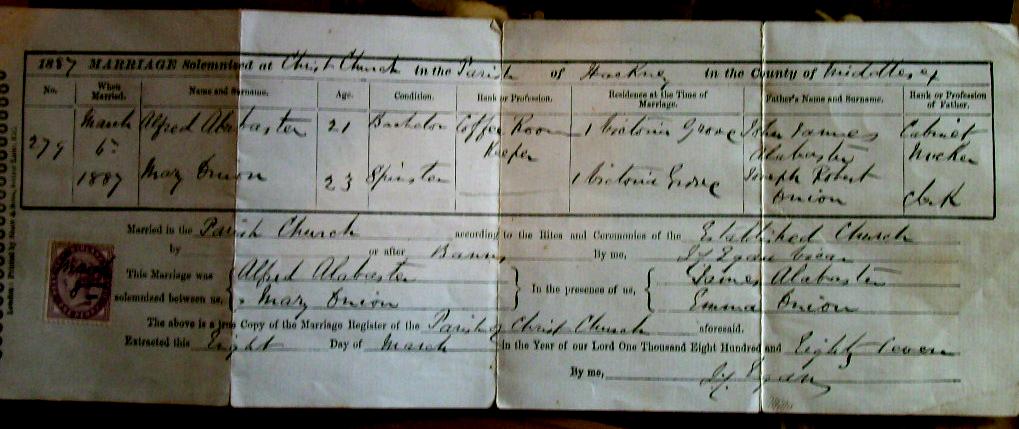 1887 MARRIAGE Solemnized at Christ Church in the Parish of Hackney in the County of Middlesex
No. When Married. Name and Surname. Age. Condition. Rank or Profession. Residence at the Time of Marriage. Father's Name and Surname. Rank or Profession of Father.
279 March 6th 1887 Alfred Alabaster 21 Bachelor Coffee Room Keeper 1 Victoria Grove John James Alabaster Cabinet Maker
Mary Onion 23 Spinster 1 Victoria Grove Joseph Robert Onion Clerk
Married in the Parish Church according to the Rites and Ceremonies of the Established Church
by or after Banns By me, Egan
This Marriage was solemnized between us, Alfred Alabaster Mary Onion In the presence of us, James Alabaster Emma Onion
The above is a true Copy of the Marriage Register of the Parish of Christ Church aforesaid.
Extracted this Eight Day of March in the Year of our Lord One Thousand Eight Hundred and Eighty Seven
By me, Egan